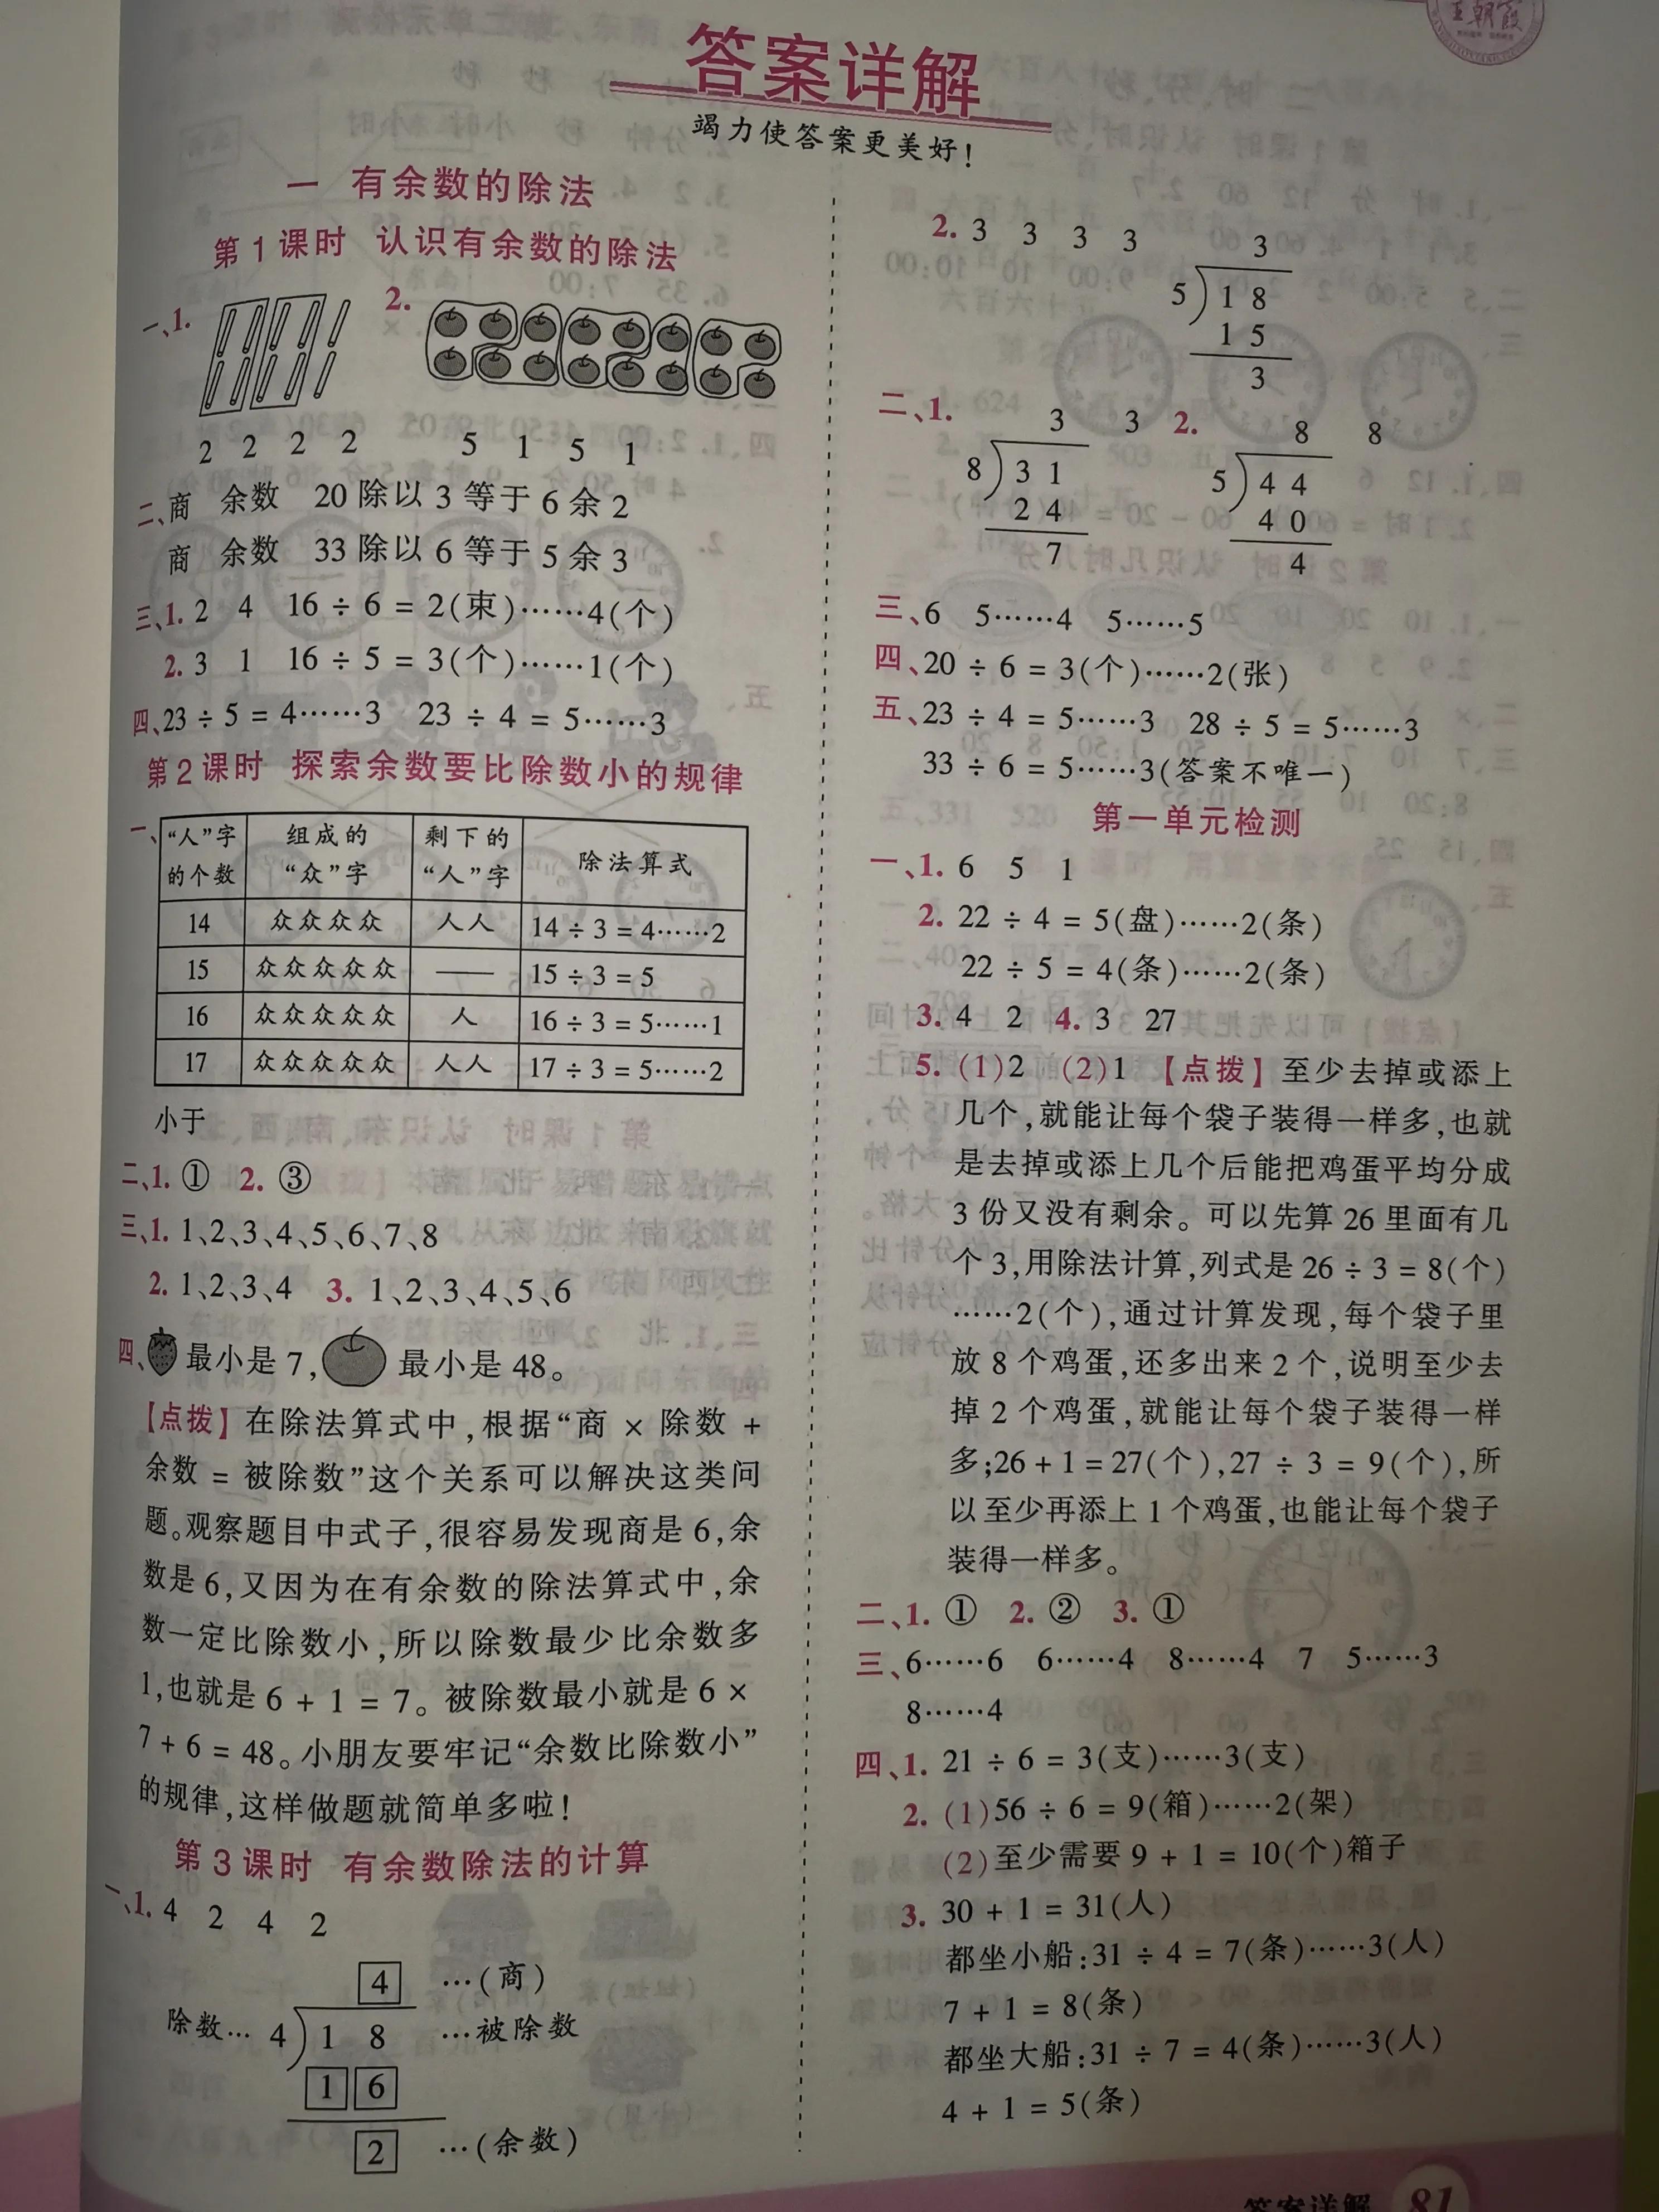 王朝霞
答案详解
竭力使答案更美好!
一 有余数的除法
第1课时 认识有余数的除法
一、1. 2.
2 2 2 2 5 1 5 1
二、商 余数 20除以3等于6余2
商 余数 33除以6等于5余3
三、1. 2 4 16÷6=2(束)……4(个)
2. 3 1 16÷5=3(个)……1(个)
四、23÷5=4……3 23÷4=5……3
第2课时 探索余数要比除数小的规律
一、
“人”字的个数 组成的“众”字 剩下的“人”字 除法算式
14 众众众众 人人 14÷3=4……2
15 众众众众众 —— 15÷3=5
16 众众众众众 人 16÷3=5……1
17 众众众众众 人人 17÷3=5……2
小于
二、1. ① 2. ③
三、1. 1、2、3、4、5、6、7、8
2. 1、2、3、4 3. 1、2、3、4、5、6
四、最小是7, 最小是48。
【点拨】在除法算式中,根据“商×除数+
余数=被除数”这个关系可以解决这类问
题。观察题目中式子,很容易发现商是6,余
数是6,又因为在有余数的除法算式中,余
数一定比除数小,所以除数最少比余数多
1,也就是6+1=7。被除数最小就是6×
7+6=48。小朋友要牢记“余数比除数小”
的规律,这样做题就简单多啦!
第3课时 有余数除法的计算
一、1. 4 2 4 2
4 …(商)
除数… 4 1 8 …被除数
1 6
2 …(余数)
2. 3 3 3 3
3
5 1 8
1 5
3
二、1. 3 3 2. 8 8
8 3 1 5 4 4
2 4 4 0
7 4
三、6 5……4 5……5
四、20÷6=3(个)……2(张)
五、23÷4=5……3 28÷5=5……3
33÷6=5……3(答案不唯一)
第一单元检测
一、1. 6 5 1
2. 22÷4=5(盘)……2(条)
22÷5=4(条)……2(条)
3. 4 2 4. 3 27
5. (1)2 (2)1 【点拨】至少去掉或添上
几个,就能让每个袋子装得一样多,也就
是去掉或添上几个后能把鸡蛋平均分成
3份又没有剩余。可以先算26里面有几
个3,用除法计算,列式是26÷3=8(个)
……2(个),通过计算发现,每个袋子里
放8个鸡蛋,还多出来2个,说明至少去
掉2个鸡蛋,就能让每个袋子装得一样
多;26+1=27(个),27÷3=9(个),所
以至少再添上1个鸡蛋,也能让每个袋子
装得一样多。
二、1. ① 2. ② 3. ①
三、6……6 6……4 8……4 7 5……3
8……4
四、1. 21÷6=3(支)……3(支)
2. (1)56÷6=9(箱)……2(架)
(2)至少需要9+1=10(个)箱子
3. 30+1=31(人)
都坐小船:31÷4=7(条)……3(人)
7+1=8(条)
都坐大船:31÷7=4(条)……3(人)
4+1=5(条)
答案详解 81